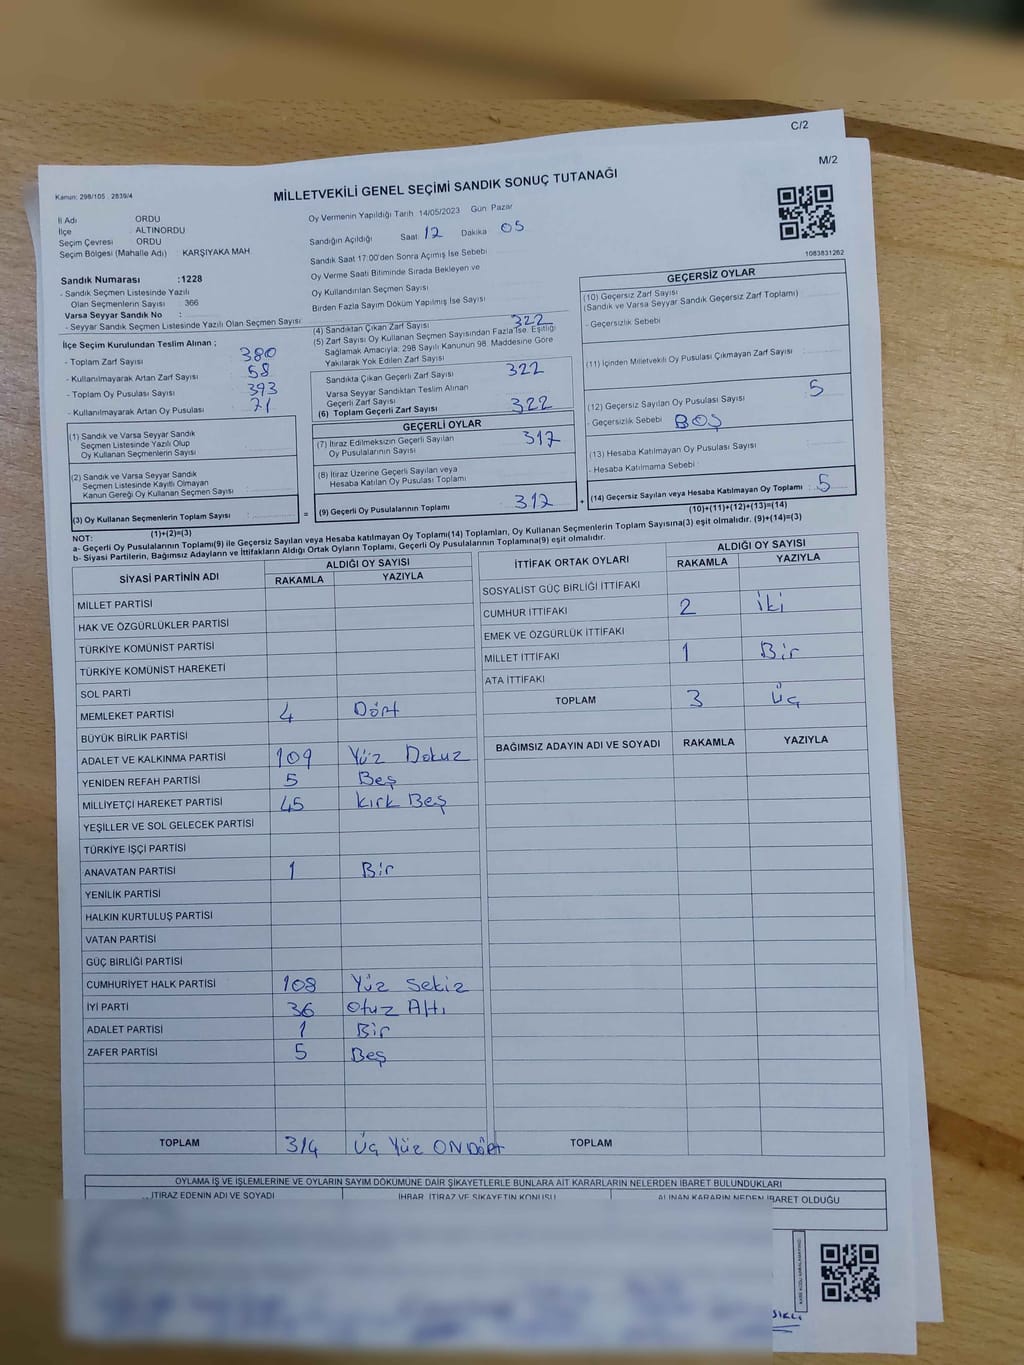 C/2
M/2
Kanun: 298/105 . 2839/4
MİLLETVEKİLİ GENEL SEÇİMİ SANDIK SONUÇ TUTANAĞI
İl Adı : ORDU
İlçe : ALTINORDU
Seçim Çevresi : ORDU
Seçim Bölgesi (Mahalle Adı) : KARŞIYAKA MAH
Sandık Numarası :1228
- Sandık Seçmen Listesinde Yazılı
Olan Seçmenlerin Sayısı : 366
Varsa Seyyar Sandık No :
- Seyyar Sandık Seçmen Listesinde Yazılı Olan Seçmen Sayısı:
Oy Vermenin Yapıldığı Tarih 14/05/2023 Gün Pazar
Sandığın Açıldığı Saat 12 Dakika 05
Sandık Saat 17:00'den Sonra Açımış İse Sebebi
Oy Verme Saati Bitiminde Sırada Bekleyen ve
Oy Kullandırılan Seçmen Sayısı
Birden Fazla Sayım Döküm Yapılmış İse Sayısı
1083831262
İlçe Seçim Kurulundan Teslim Alınan ;
- Toplam Zarf Sayısı : 380
- Kullanılmayarak Artan Zarf Sayısı : 58
- Toplam Oy Pusulası Sayısı : 393
- Kullanılmayarak Artan Oy Pusulası : 71
(1) Sandık ve Varsa Seyyar Sandık
Seçmen Listesinde Yazılı Olup
Oy Kullanan Seçmenlerin Sayısı :
(2) Sandık ve Varsa Seyyar Sandık
Seçmen Listesinde Kayıtlı Olmayan
Kanun Gereği Oy Kullanan Seçmen Sayısı :
(3) Oy Kullanan Seçmenlerin Toplam Sayısı :
(1)+(2)=(3)
(4) Sandıktan Çıkan Zarf Sayısı 322
(5) Zarf Sayısı Oy Kullanan Seçmen Sayısından Fazla İse, Eşitliği
Sağlamak Amacıyla, 298 Sayılı Kanunun 98. Maddesine Göre
Yakılarak Yok Edilen Zarf Sayısı
Sandıkta Çıkan Geçerli Zarf Sayısı 322
Varsa Seyyar Sandıktan Teslim Alınan
Geçerli Zarf Sayısı
(6) Toplam Geçerli Zarf Sayısı 322
GEÇERLİ OYLAR
(7) İtiraz Edilmeksizin Geçerli Sayılan
Oy Pusulalarının Sayısı 317
(8) İtiraz Üzerine Geçerli Sayılan veya
Hesaba Katılan Oy Pusulası Toplamı
= (9) Geçerli Oy Pusulalarının Toplamı 317 +
GEÇERSİZ OYLAR
(10) Geçersiz Zarf Sayısı
(Sandık ve Varsa Seyyar Sandık Geçersiz Zarf Toplamı)
- Geçersizlik Sebebi
(11) İçinden Milletvekili Oy Pusulası Çıkmayan Zarf Sayısı
(12) Geçersiz Sayılan Oy Pusulası Sayısı 5
- Geçersizlik Sebebi BOŞ
(13) Hesaba Katılmayan Oy Pusulası Sayısı
- Hesaba Katılmama Sebebi
(14) Geçersiz Sayılan veya Hesaba Katılmayan Oy Toplamı : 5
(10)+(11)+(12)+(13)=(14)
NOT:
a- Geçerli Oy Pusulalarının Toplamı(9) ile Geçersiz Sayılan veya Hesaba katılmayan Oy Toplamı(14) Toplamları, Oy Kullanan Seçmenlerin Toplam Sayısına(3) eşit olmalıdır. (9)+(14)=(3)
b- Siyasi Partilerin, Bağımsız Adayların ve İttifakların Aldığı Ortak Oyların Toplamı, Geçerli Oy Pusulalarının Toplamına(9) eşit olmalıdır.
SİYASİ PARTİNİN ADI ALDIĞI OY SAYISI
RAKAMLA YAZIYLA
MİLLET PARTİSİ
HAK VE ÖZGÜRLÜKLER PARTİSİ
TÜRKİYE KOMÜNİST PARTİSİ
TÜRKİYE KOMÜNİST HAREKETİ
SOL PARTİ
MEMLEKET PARTİSİ 4 Dört
BÜYÜK BİRLİK PARTİSİ
ADALET VE KALKINMA PARTİSİ 109 Yüz Dokuz
YENİDEN REFAH PARTİSİ 5 Beş
MİLLİYETÇİ HAREKET PARTİSİ 45 Kırk Beş
YEŞİLLER VE SOL GELECEK PARTİSİ
TÜRKİYE İŞÇİ PARTİSİ
ANAVATAN PARTİSİ 1 Bir
YENİLİK PARTİSİ
HALKIN KURTULUŞ PARTİSİ
VATAN PARTİSİ
GÜÇ BİRLİĞİ PARTİSİ
CUMHURİYET HALK PARTİSİ 108 Yüz Sekiz
İYİ PARTİ 36 Otuz Altı
ADALET PARTİSİ 1 Bir
ZAFER PARTİSİ 5 Beş
TOPLAM 314 Üç Yüz ONDört
İTTİFAK ORTAK OYLARI ALDIĞI OY SAYISI
RAKAMLA YAZIYLA
SOSYALIST GÜÇ BİRLİĞİ İTTİFAKI
CUMHUR İTTİFAKI 2 İki
EMEK VE ÖZGÜRLÜK İTTİFAKI
MİLLET İTTİFAKI 1 Bir
ATA İTTİFAKI
TOPLAM 3 Üç
BAĞIMSIZ ADAYIN ADI VE SOYADI RAKAMLA YAZIYLA
TOPLAM
OYLAMA İŞ VE İŞLEMLERİNE VE OYLARIN SAYIM DÖKÜMÜNE DAİR ŞİKAYETLERLE BUNLARA AİT KARARLARIN NELERDEN İBARET BULUNDUKLARI
İTİRAZ EDENİN ADI VE SOYADI İHBAR, İTİRAZ VE ŞİKAYETİN KONUSU ALINAN KARARIN NEDEN İBARET OLDUĞU